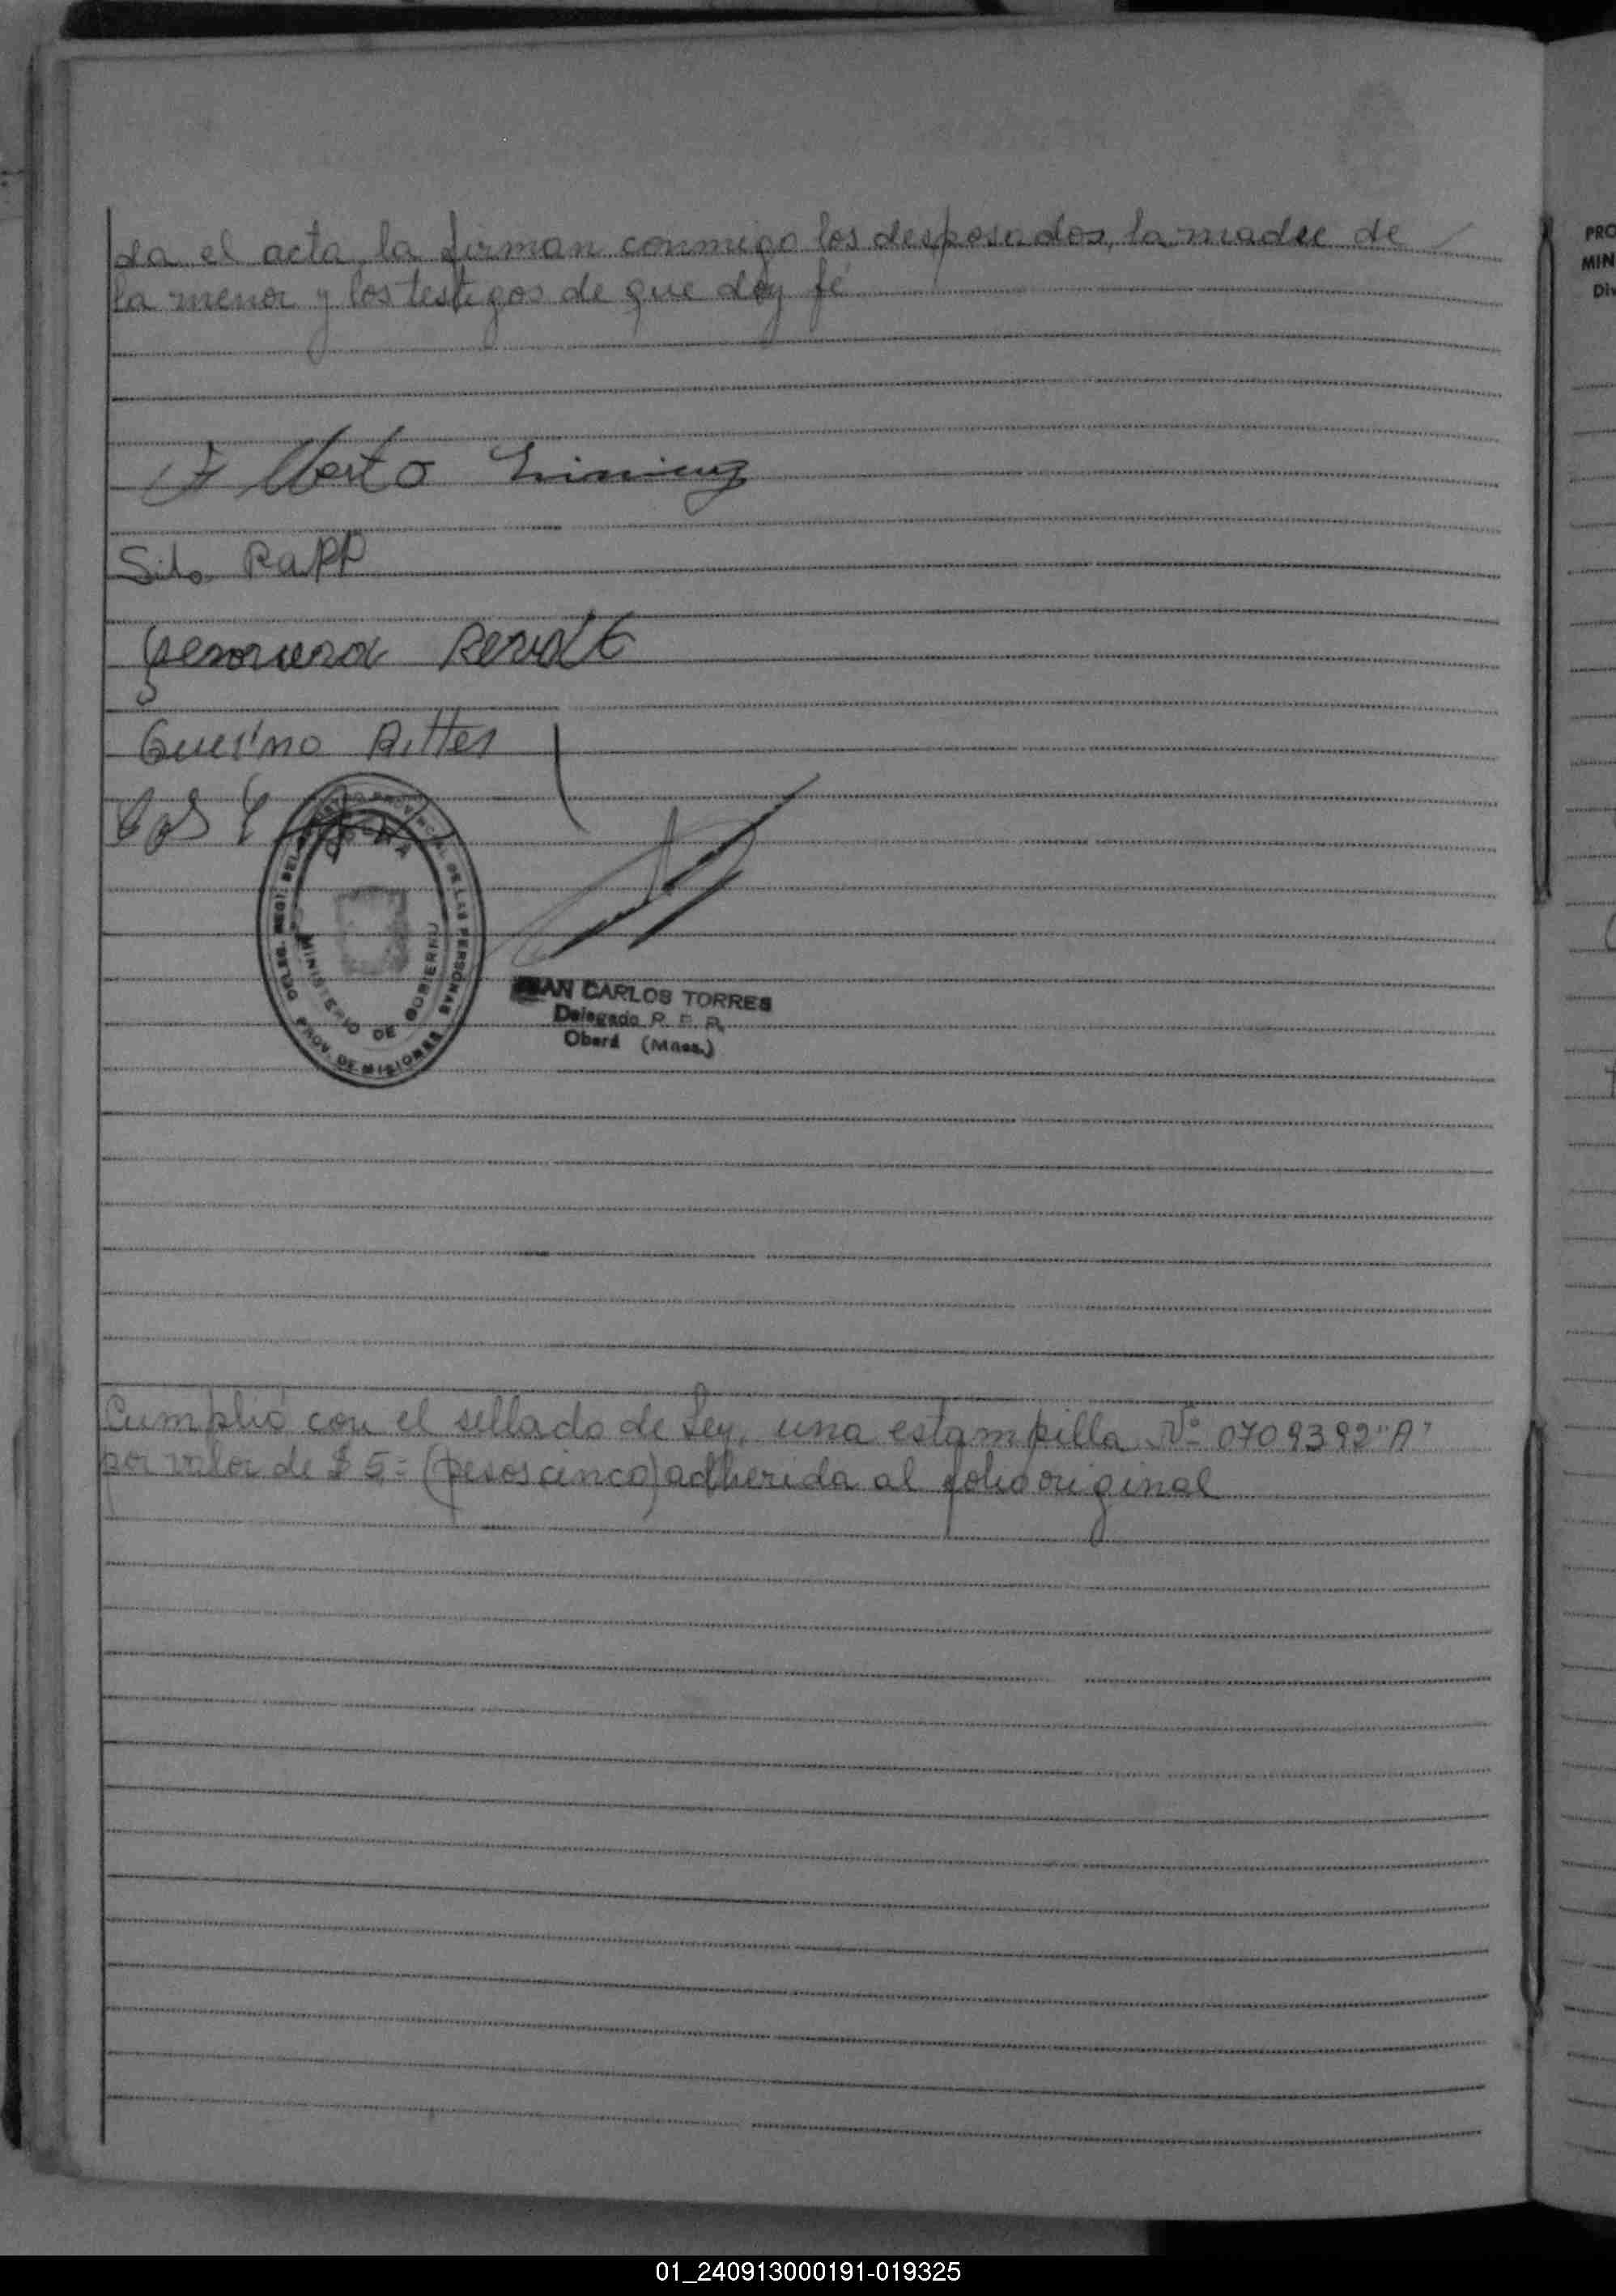 da el acta, la firman conmigo los desposados, la madre de
la menor y los testigos de que doy fé
Alberto
Silo Rapp
Guerino Ritter
MINISTERIO DE GOBIERNO
PROV. DE MISIONES
JUAN CARLOS TORRES
Delegado R. P. P.
Oberá (Mnes.)
Cumplió con el sellado de Ley, una estampilla Nº 0709392 "A"
por valor de $ 5= (pesos cinco) adherida al folio original
PRO
MIN
Div
01_240913000191-019325